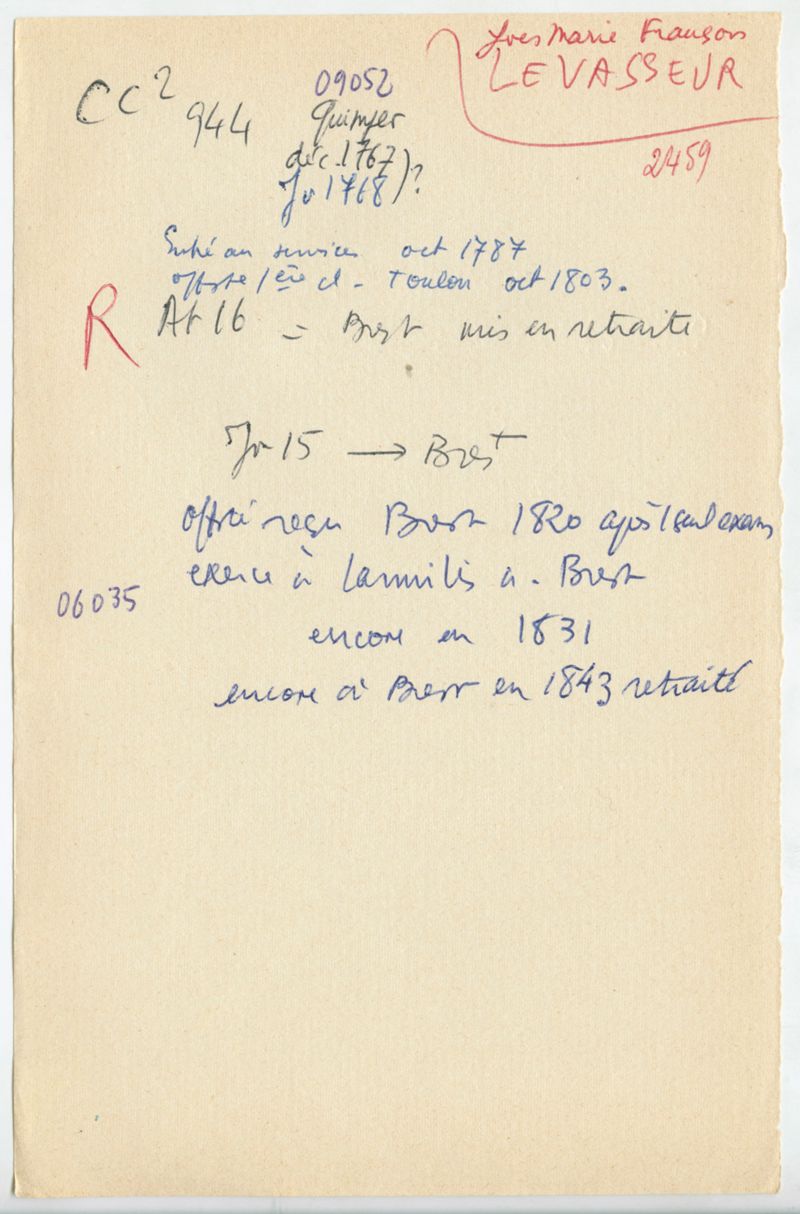 Yves Marie François
LEVASSEUR
2459
CC2 944
09052
Quimper
déc. 1767)
Jr 1768) ?
Entré au services oct 1787
offste 1ère cl - Toulon oct 1803.
R At 16 = Brest mis en retraite
Jr 15 → Brest
reçu Brest 1820 après 1 seul exam
exerce à Lannilis a. Brest
06035
encore en 1831
encore à Brest en 1843 retraité